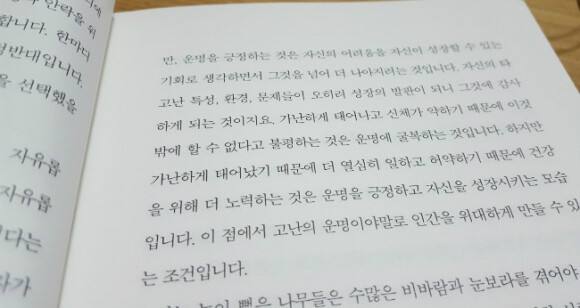 안락을 위
합니다. 한마디
정반대입니다.
을 선택했을
자유롭
자유롭
다는
만, 운명을 긍정하는 것은 자신의 어려움을 자신이 성장할 수 있는
기회로 생각하면서 그것을 넘어 더 나아지려는 것입니다. 자신의 타
고난 특성, 환경, 문제들이 오히려 성장의 발판이 되니 그것에 감사
하게 되는 것이지요. 가난하게 태어나고 신체가 약하기 때문에 이것
밖에 할 수 없다고 불평하는 것은 운명에 굴복하는 것입니다. 하지만
가난하게 태어났기 때문에 더 열심히 일하고 허약하기 때문에 건강
을 위해 더 노력하는 것은 운명을 긍정하고 자신을 성장시키는 모습
입니다. 이 점에서 고난의 운명이야말로 인간을 위대하게 만들 수 있
는 조건입니다.
높이 뻗은 나무들은 수많은 비바람과 눈보라를 겪어야